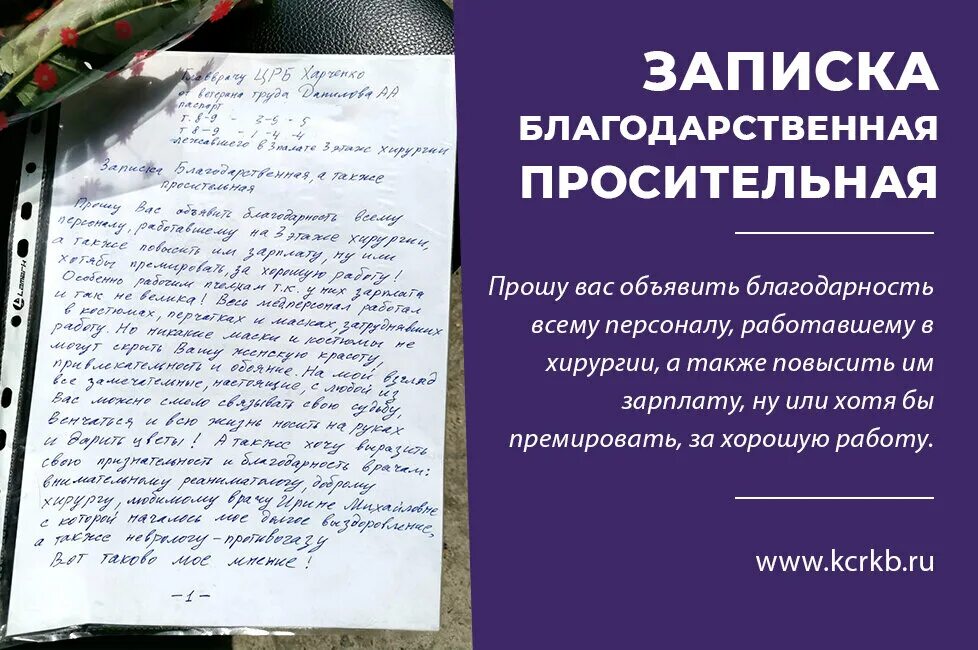 Главврачу ЦРБ Харченко
от ветерана труда Данилова АА
паспорт
т. 8-9 - 3-5 - 5
т. 8-9 - 1-4-4
лежавшего в 3 палате 3 этаж хирургии
Записка Благодарственная, а также
просительная
Прошу Вас объявить благодарность всему
персоналу, работавшему на 3 этаже хирургии,
а также повысить им зарплату, ну или
хотябы премировать, за хорошую работу!
Особенно рабочим пчелкам т.к. у них зарплата
и так не велика! Весь медперсонал работал
в костюмах, перчатках и масках, затруднявших
работу. Но никакие маски и костюмы не
могут скрыть Вашу женскую красоту,
привлекательность и обояние. На мой взгляд
все замечательные, настоящие, с любой из
Вас можно смело связывать свою судьбу,
Венчаться и всю жизнь носить на руках
и дарить цветы! А также хочу выразить
свою признательность и благодарность врачам:
внимательному реаниматологу, доброму
хирургу, любимому врачу Ирине Михайловне
с которой началось мое долгое выздоровление,
а также неврологу-противогазу
Вот таково мое мнение!
-1-
Lamark
ЗАПИСКА
БЛАГОДАРСТВЕННАЯ
ПРОСИТЕЛЬНАЯ
Прошу вас объявить благодарность
всему персоналу, работавшему в
хирургии, а также повысить им
зарплату, ну или хотя бы
премировать, за хорошую работу.
www.kcrkb.ru